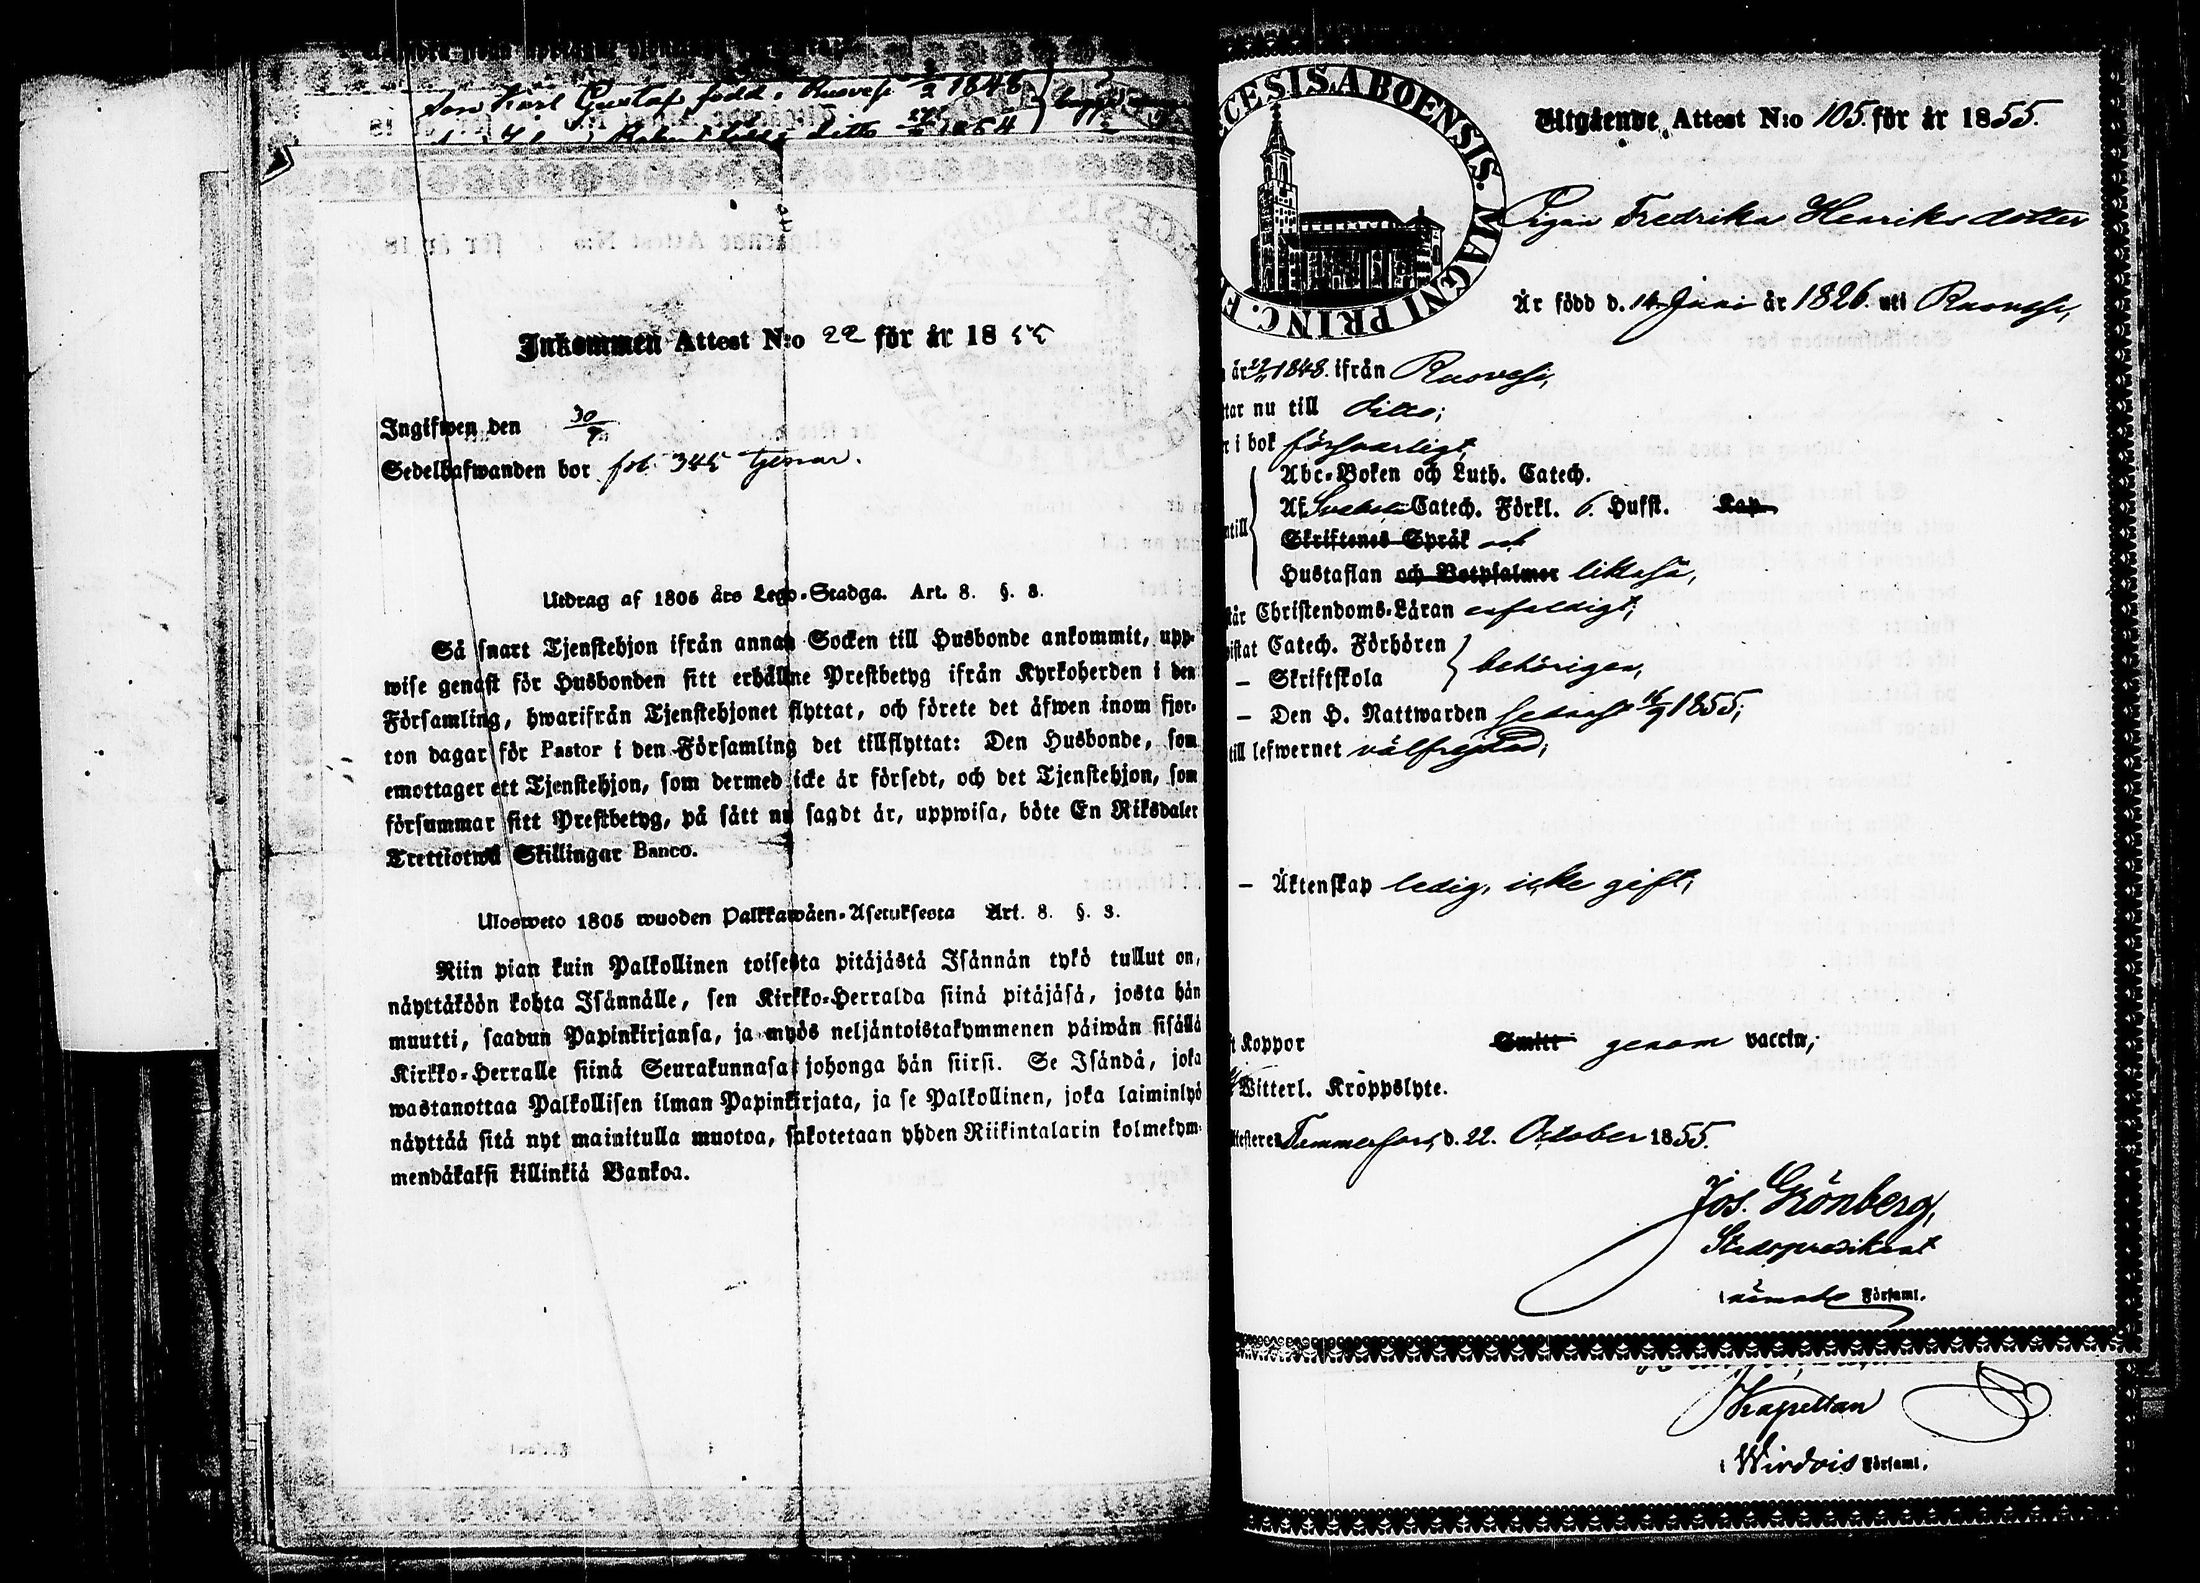 Son Karl Gustaf född i Ruovesi 1848
ditto 1854
Inkommen Attest N:o 22 för år 1855
Ingifwen den 30/9
Sedelhafwanden bor fol. 345 tjenar.
Utdrag af 1805 års Lego-Stadga. Art. 8. §. 3.
Så snart Tjenstehjon ifrån annan Socken till Husbonde ankommit, upp-
wise genast för Husbonden sitt erhållne Prestbetyg ifrån Kyrkoherden i den
Församling, hwarifrån Tjenstehjonet flyttat, och förete det äfwen inom fjor-
ton dagar för Pastor i den Församling det tillflyttat: Den Husbonde, som
emottager ett Tjenstehjon, som dermed icke är försedt, och det Tjenstehjon, som
försummar sitt Prestbetyg, på sätt nu sagdt är, uppwisa, böte En Riksdaler
Trettiotwå Skillingar Banco.
Ulosweto 1805 wuoden Palkkawäen-Asetuksesta Art. 8. §. 3.
Niin pian kuin Palkollinen toisesta pitäjästä Isännän tykö tullut on,
näyttäköön kohta Isännälle, sen Kirkko-Herralda siinä pitäjäsä, josta hän
muutti, saadun Papinkirjansa, ja myös neljäntoistakymmenen päiwän sisällä
Kirkko-Herralle siinä Seurakunnasa johonga hän siirsi. Se Isändä, joka
wastanottaa Palkollisen ilman Papinkirjata, ja se Palkollinen, joka laiminlyö
näyttää sitä nyt mainitulla muotoa, sakotetaan yhden Riikintalarin kolmekym-
mendäkaksi killinkiä Bankoa.
CESIS. ABOENSIS. MAGNI PRINC. F
Utgående Attest N:o 105. för år 1855.
Pigan Fredrika Henriksdotter
Är född d. 14 Juni år 1826. uti Ruovesi,
år 1848. ifrån Ruovesi,
tar nu till ditto;
r i bok försvarligt,
Abc-Boken och Luth. Catech.
Af Svebelii Catech. Förkl. 6. Hufst. Kap.
ntill
Skriftenes Språk och
Hustaflan och Botpsalmer likaså,
tår Christendoms-Läran enfaldigt;
istat Catech. Förhören
behörigen,
– Skriftskola
– Den H. Nattwarden senast 16/9 1855;
till lefwernet välfrejdad;
– Äktenskap ledig, icke gift;
t Koppor Smitt genom vaccin;
Witterl. Kroppslyte.
ttesteres Tammerfors, d. 22. October 1855.
Jos. Grönberg,
Stadspredikant
i nämnde Församl.
Kapellan
i Wirdois Församl.